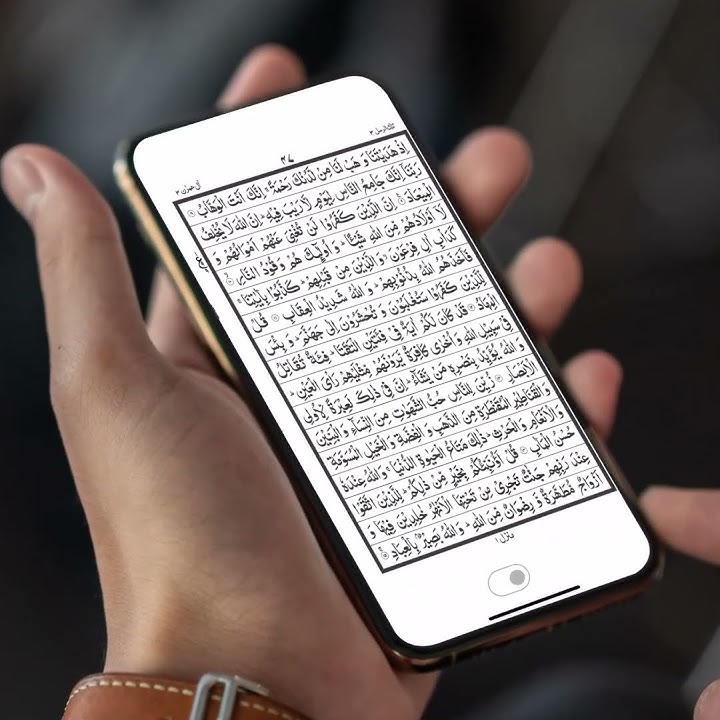 تلك الرسل ٣
٤٧
اٰل عمرٰن ٣
اِذْ هَدَيْتَنَا وَ هَبْ لَنَا مِنْ لَّدُنْكَ رَحْمَةً ۚ اِنَّكَ اَنْتَ الْوَهَّابُ ۝
رَبَّنَاۤ اِنَّكَ جَامِعُ النَّاسِ لِيَوْمٍ لَّا رَيْبَ فِيْهِ ؕ اِنَّ اللّٰهَ لَا يُخْلِفُ
الْمِيْعَادَ ۝ اِنَّ الَّذِيْنَ كَفَرُوْا لَنْ تُغْنِيَ عَنْهُمْ اَمْوَالُهُمْ وَ
لَاۤ اَوْلَادُهُمْ مِّنَ اللّٰهِ شَيْـًٔا ؕ وَ اُولٰٓئِكَ هُمْ وَقُوْدُ النَّارِ ۝
كَدَاْبِ اٰلِ فِرْعَوْنَ ۙ وَ الَّذِيْنَ مِنْ قَبْلِهِمْ ؕ كَذَّبُوْا بِاٰيٰتِنَا ۚ
فَاَخَذَهُمُ اللّٰهُ بِذُنُوْبِهِمْ ؕ وَ اللّٰهُ شَدِيْدُ الْعِقَابِ ۝ قُلْ
لِّلَّذِيْنَ كَفَرُوْا سَتُغْلَبُوْنَ وَ تُحْشَرُوْنَ اِلٰى جَهَنَّمَ ؕ وَ بِئْسَ
الْمِهَادُ ۝ قَدْ كَانَ لَكُمْ اٰيَةٌ فِيْ فِئَتَيْنِ الْتَقَتَا ؕ فِئَةٌ تُقَاتِلُ
فِيْ سَبِيْلِ اللّٰهِ وَ اُخْرٰى كَافِرَةٌ يَّرَوْنَهُمْ مِّثْلَيْهِمْ رَاْيَ الْعَيْنِ ؕ
وَ اللّٰهُ يُؤَيِّدُ بِنَصْرِهٖ مَنْ يَّشَآءُ ؕ اِنَّ فِيْ ذٰلِكَ لَعِبْرَةً لِّاُولِي
الْاَبْصَارِ ۝ زُيِّنَ لِلنَّاسِ حُبُّ الشَّهَوٰتِ مِنَ النِّسَآءِ وَ الْبَنِيْنَ
وَ الْقَنَاطِيْرِ الْمُقَنْطَرَةِ مِنَ الذَّهَبِ وَ الْفِضَّةِ وَ الْخَيْلِ الْمُسَوَّمَةِ
وَ الْاَنْعَامِ وَ الْحَرْثِ ؕ ذٰلِكَ مَتَاعُ الْحَيٰوةِ الدُّنْيَا ۚ وَ اللّٰهُ عِنْدَهٗ
حُسْنُ الْمَاٰبِ ۝ قُلْ اَؤُنَبِّئُكُمْ بِخَيْرٍ مِّنْ ذٰلِكُمْ ؕ لِلَّذِيْنَ اتَّقَوْا
عِنْدَ رَبِّهِمْ جَنّٰتٌ تَجْرِيْ مِنْ تَحْتِهَا الْاَنْهٰرُ خٰلِدِيْنَ فِيْهَا وَ
اَزْوَاجٌ مُّطَهَّرَةٌ وَّ رِضْوَانٌ مِّنَ اللّٰهِ ؕ وَ اللّٰهُ بَصِيْرٌۢ بِالْعِبَادِ ۝
ع
منزل ١